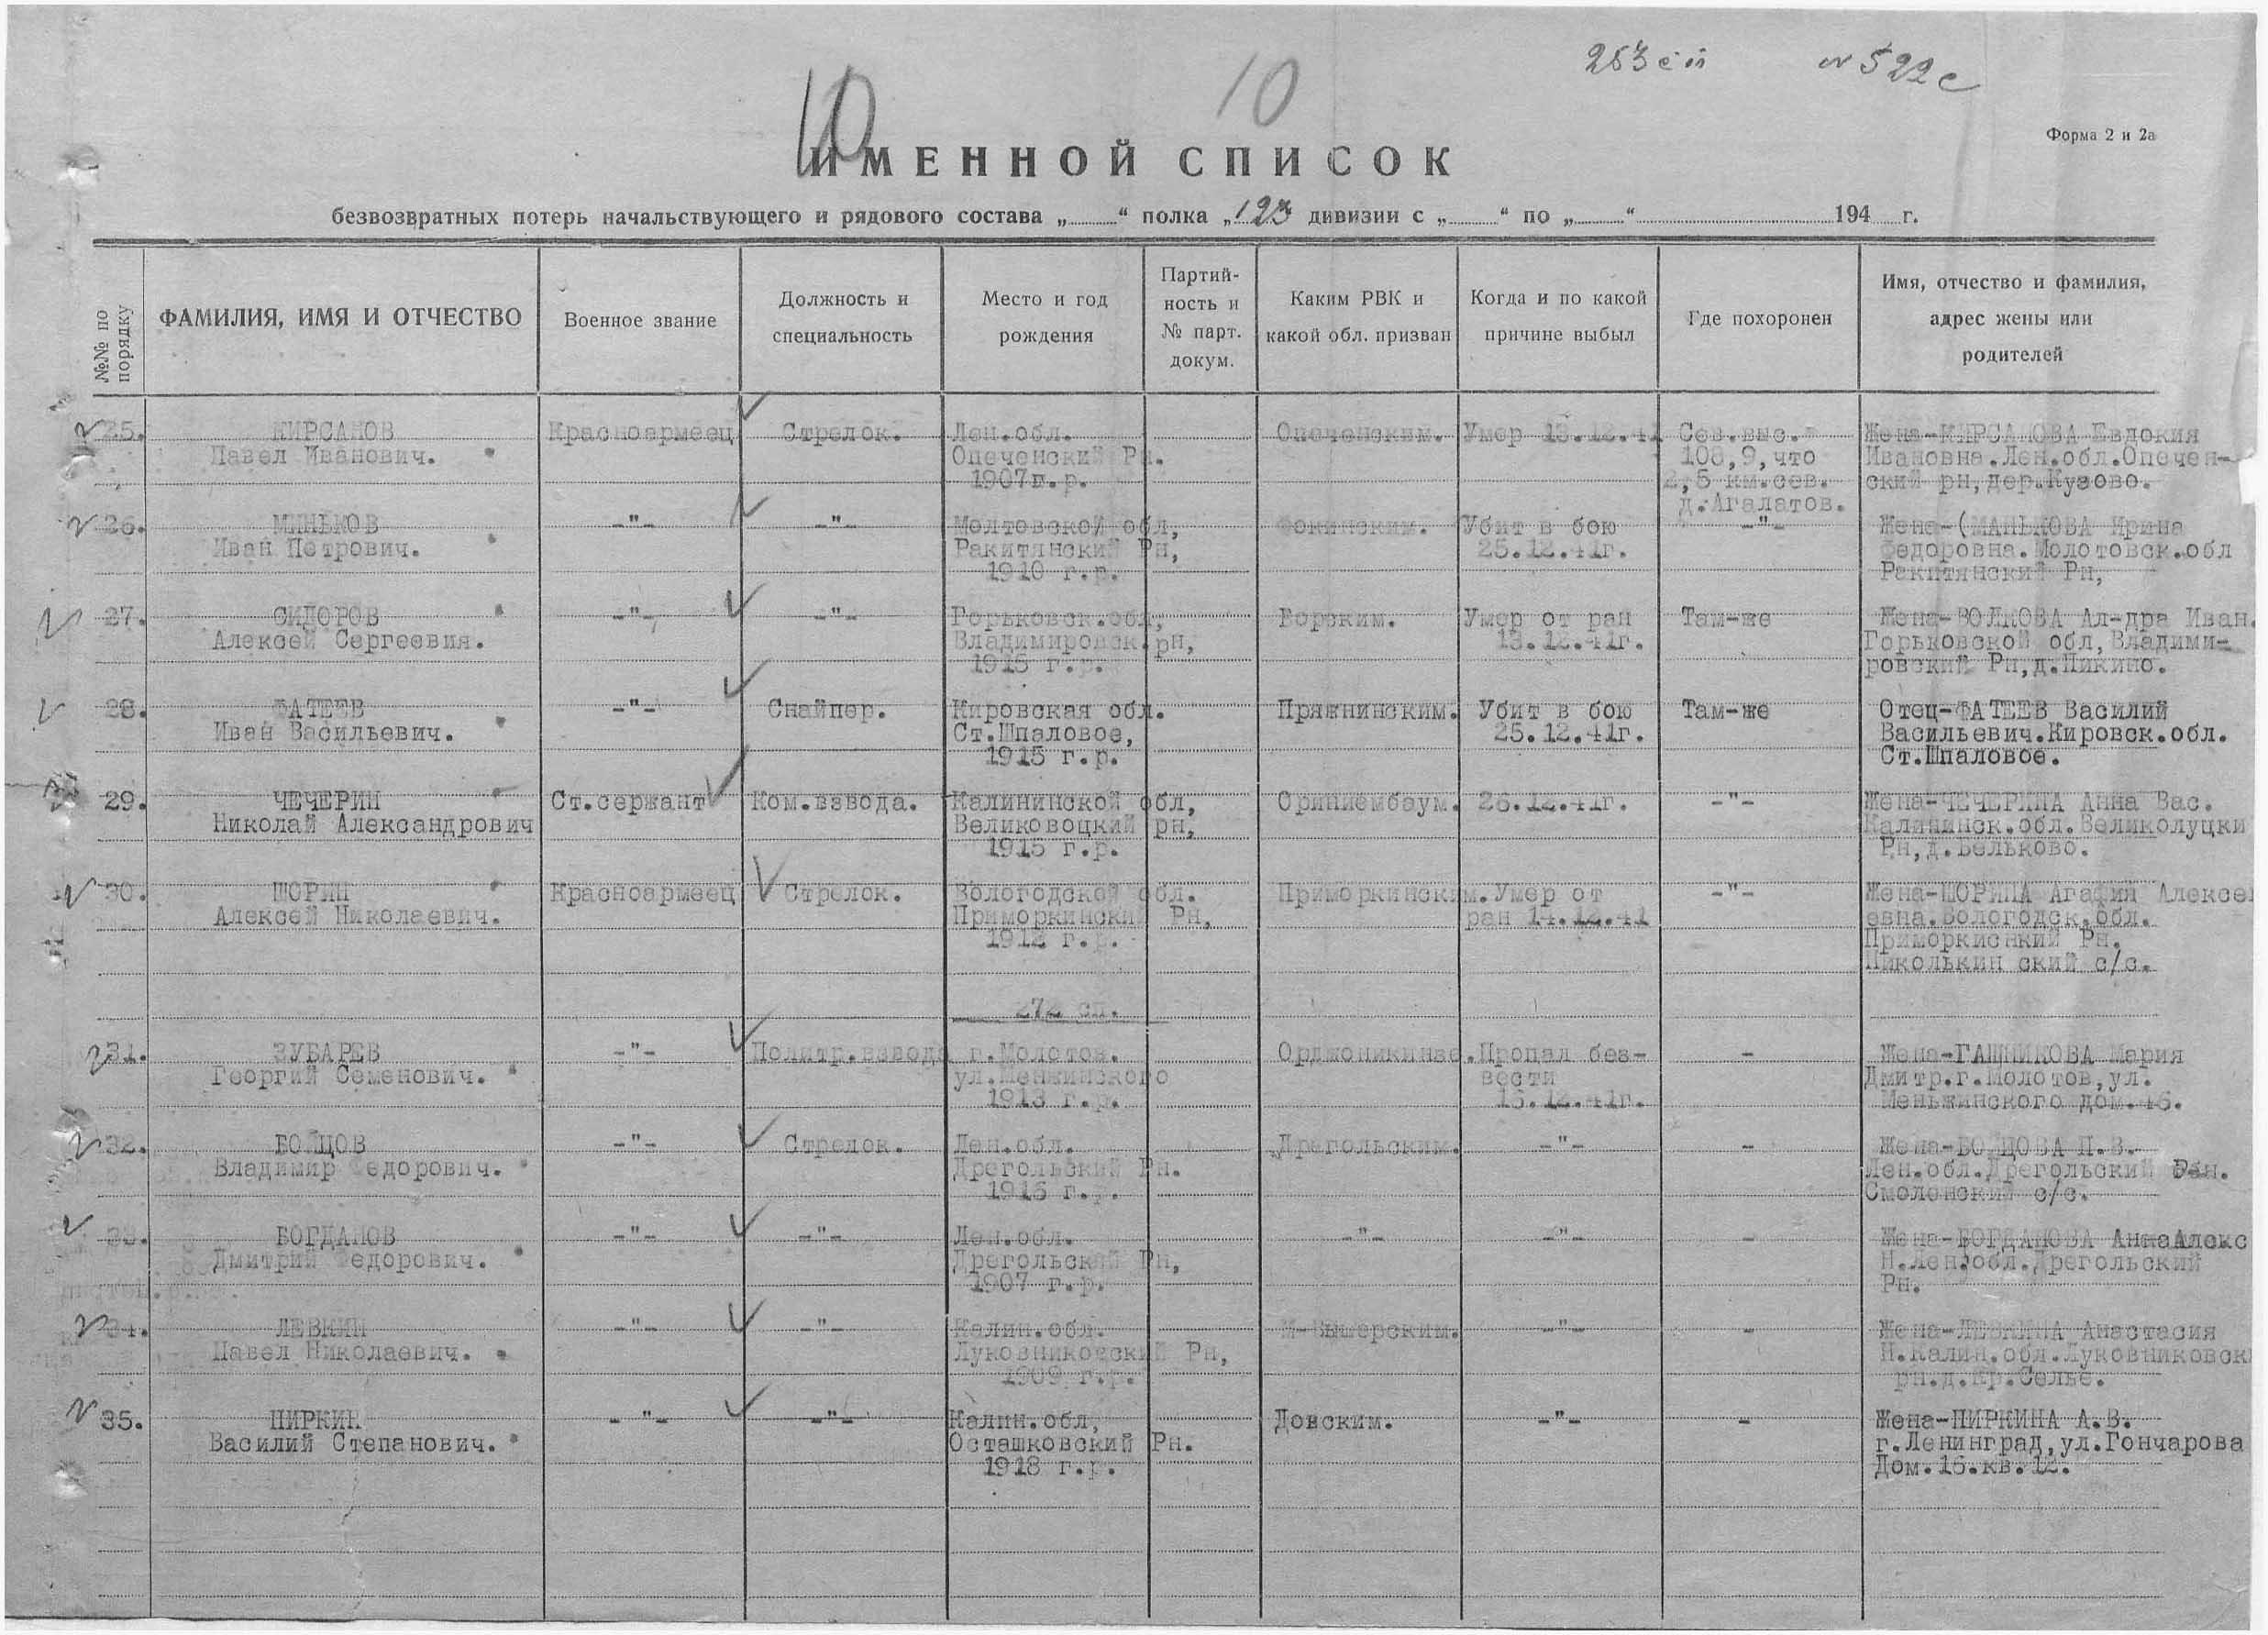 10 10
№ 522с
Форма 2 и 2а
ИМЕННОЙ СПИСОК
безвозвратных потерь начальствующего и рядового состава „ “ полка „123 дивизии с „ “ по „ “ 194 г.
№№ по порядку
ФАМИЛИЯ, ИМЯ И ОТЧЕСТВО
Военное звание
Должность и
специальность
Место и год
рождения
Партий-
ность и
№ парт.
докум.
Каким РВК и
какой обл. призван
Когда и по какой
причине выбыл
Где похоронен
Имя, отчество и фамилия,
адрес жены или
родителей
25. КИРСАНОВ Красноармеец Стрелок. Лен.обл. Опеченским. Умер 13.12.41 Сев.выс. Жена-КИРСАНОВА Евдокия
Павел Иванович. Опеченский Рн. 108,9,что Ивановна.Лен.обл.Опечен-
1907г.р. 2,5 км.сев. ский рн,дер.Кузово.
д.Агалатов.
26. МИНЬКОВ -"- -"- Молтовской обл, Фокинским. Убит в бою -"- Жена-(МАНЬКОВА Ирина
Иван Петрович. Ракитянский Рн, 25.12.41г. Федоровна.Молотовск.обл
1910 г.р. Ракитянский Рн,
27. СИДОРОВ -"- -"- Горьковск.обл, Борским. Умер от ран Там-же Жена-ВОЛКОВА Ал-дра Иван.
Алексей Сергеевия. Владимировск.рн, 13.12.41г. Горьковской обл,Владими-
1915 г.р. ровский Рн,д.Пикино.
28. ФАТЕЕВ -"- Снайпер. Кировская обл. Пряжнинским. Убит в бою Там-же Отец-ФАТЕЕВ Василий
Иван Васильевич. Ст.Шпаловое, 25.12.41г. Васильевич.Кировск.обл.
1915 г.р. Ст.Шпаловое.
29. ЧЕЧЕРИН Ст.сержант Ком.взвода. Калининской обл, Ориниембаум. 26.12.41г. -"- Жена-ЧЕЧЕРИНА Анна Вас.
Николай Александрович Великовоцкий рн, Калининск.обл.Великолуцки
1915 г.р. Рн,д.Бельково.
30. ШОРИН Красноармеец Стрелок. Вологодской обл. Приморкинским. Умер от -"- Жена-ШОРИНА Агафия Алексе
Алексей Николаевич. Приморкинский Рн, ран 14.12.41 евна.Вологодск.обл.
1912 г.р. Приморкиснкий Рн.
Николькин ский с/с.
272 сп.
31. ЗУБАРЕВ -"- Политр.взвода г.Молотов. Орджоникидзе. Пропал без- - Жена-ГАШНИКОВА Мария
Георгий Семенович. ул.Менжинского вести Дмитр.г.Молотов,ул.
1913 г.р. 15.12.41г. Меньжинского дом.46.
32. БОЙЦОВ -"- Стрелок. Лен.обл. Дрегольским. -"- - Жена-БОЙЦОВА П.В.
Владимир Федорович. Дрегольский Рн. Лен.обл.Дрегольский Рн.
1915 г.р. Смоленский с/с.
33. БОГДАНОВ -"- -"- Лен.обл. -"- -"- - Жена-БОГДАНОВА Анна Алекс
Дмитрий Федорович. Дрегольский Рн, Н.Лен.обл.Дрегольский
1907 г.р. Рн.
34. ЛЕВКИН -"- -"- Калин.обл. М-Вишерским. -"- - Жена-ЛЕВКИНА Анастасия
Павел Николаевич. Луковниковский Рн, Н.Калин.обл.Луковниковск
1909 г.р. рн.д.Кр.Селье.
35. ПИРКИН -"- -"- Калин.обл, Довским. -"- - Жена-ПИРКИНА А.В.
Василий Степанович. Осташковский Рн. г.Ленинград,ул.Гончарова
1918 г.р. Дом.16.кв.12.